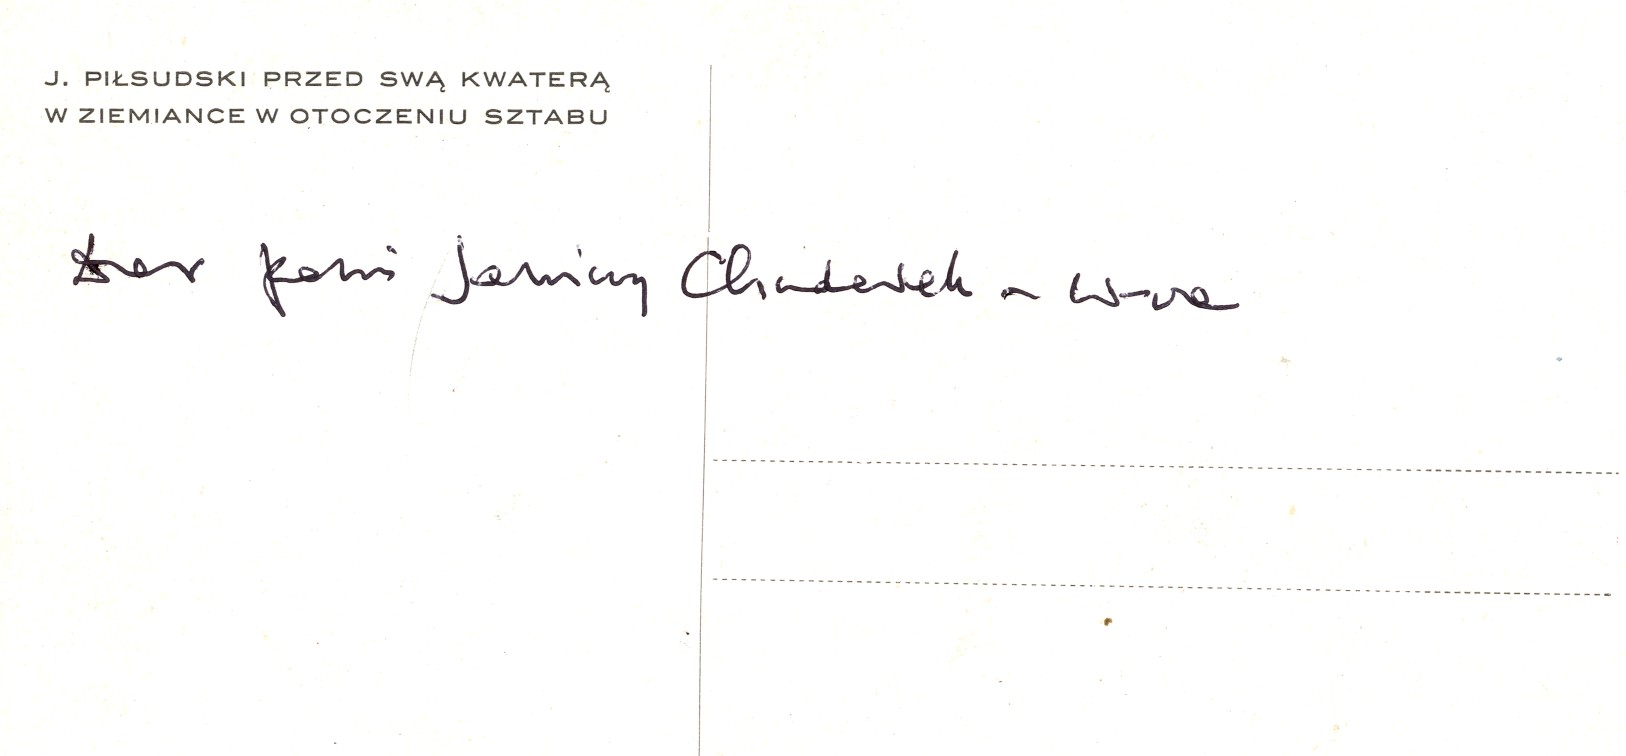 J. PIŁSUDSKI PRZED SWĄ KWATERĄ
W ZIEMIANCE W OTOCZENIU SZTABU
Dar pani Janiny - W-wa